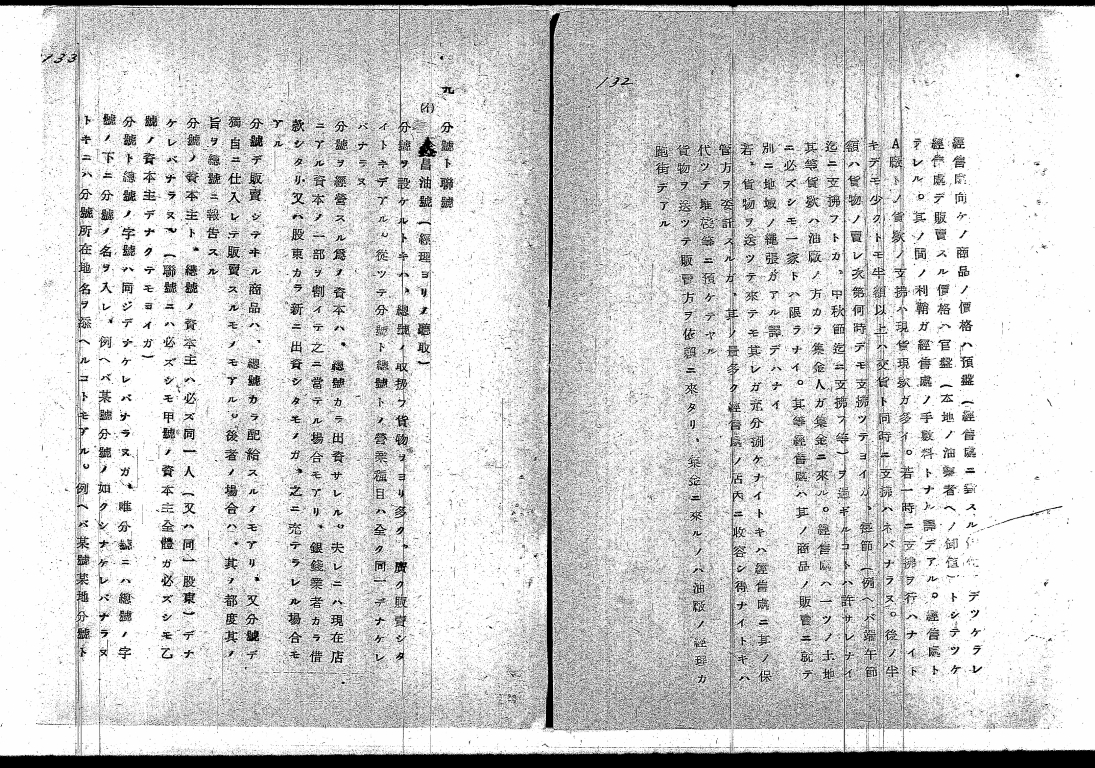 132
經售處向ケノ商品ノ價格ハ預盤(經售處ニ對スル デツケラレ
經售處デ販賣スル價格ハ官盤(本地ノ油 者ヘノ卸値)トシテツケ
テレル。其ノ間ノ利鞘ガ經售處ノ手數料トナル譯デアル。經售處ト
A廠トノ貨款ノ支拂ハ現貨現款ガ多イ。若一時ニ支拂ヲ行ハナイト
キデモ少クトモ半額以上ハ交貨ト同時ニ支拂ハネバナラヌ。後ノ半
額ハ貨物ノ賣レ次第何時デモ支拂ツテヨイガ、每節(例ヘバ端午節
迄ニ支拂フトカ、中秋節迄ニ支拂フ等)ヲ過ギルコトハ許サレナイ
其等貨款ハ油廠ノ方カラ集金人ガ集金ニ來ル。經售處ハ一ツノ土地
ニ必ズシモ一家トハ限ラナイ。其等經售處ハ其ノ商品ノ販賣ニ就テ
別ニ地域ノ繩張ガアル譯デハナイ
若、貨物ヲ送ツテ來テモ其レガ充分捌ケナイトキハ經售處ニ其ノ保
管方ヲ委託スルガ、其ノ量多ク經售處ノ店內ニ收容シ得ナイトキハ
代ツテ堆棧等ニ預ケテヤル
貨物ヲ送ツテ販賣方ヲ依賴ニ來タリ、集金ニ來ルノハ油廠ノ經理カ
跑街デアル
133
九 分號ト聯號
(イ) 昌油號(經理ヨリノ聽取)
分號ヲ設ケルトキハ、總號ノ取扱フ貨物ヲヨリ多ク、廣ク販賣シタ
イトキデアル。從ツテ分號ト總號トノ營業種目ハ全ク同一デナケレ
バナラヌ
分號ヲ經營スル爲ノ資本ハ、總號カラ出資サレル。夫レニハ現在店
ニアル資本ノ一部ヲ割イテ之ニ當テル場合モアリ、銀錢業者カラ借
款シタリ、又ハ股東カラ新ニ出資シタモノガ、之ニ充テラレル場合モ
アル
分號デ販賣シテヰル商品ハ、總號カラ配給スルノモアリ、又分號デ
獨自ニ仕入レテ販賣スルモノモアル。後者ノ場合ハ、其ノ都度其ノ
旨ヲ總號ニ報告スル
分號ノ資本主ト、總號ノ資本主ハ必ズ同一人(又ハ同一股東)デナ
ケレバナラヌ。(聯號ニハ必ズシモ甲號ノ資本主全體ガ必ズシモ乙
號ノ資本主デナクテモヨイガ)
分號ト總號ノ字號ハ同ジデナケレバナラヌガ、唯分號ニハ總號ノ字
號ノ下ニ分號ノ名ヲ入レ、例ヘバ某號分號ノ如クシナケレバナラヌ
トキニハ分號所在地名ヲ添ヘルコトモアル。例ヘバ某號某地分號ト